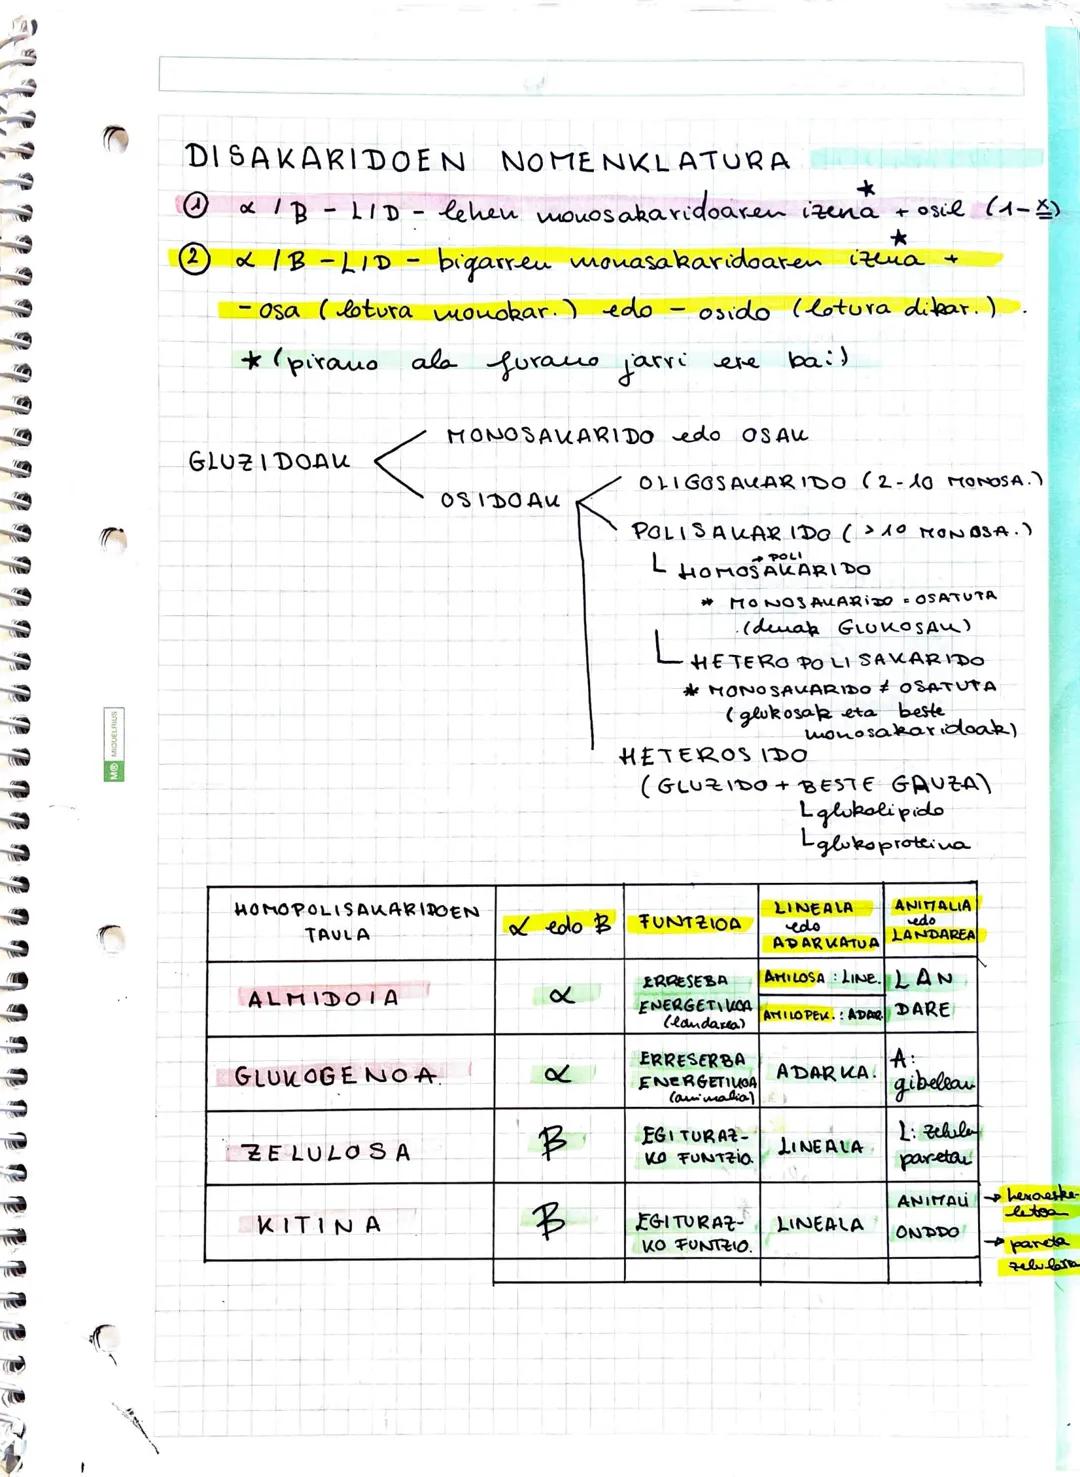 DISAKARIDOEN NOMENKLATURA
① α / B - L/D - lehen monosakaridoaren izena * + osil (1-x)
② α / B - L/D - bigarren monasakaridoaren izena * +
- osa (lotura monokar.) edo - osido (lotura dikar.).
* (pirano ala furano jarri ere bai!)
MONOSAKARIDO edo OSAK
GLUZIDOAK
OSIDOAK
OLIGOSAKARIDO (2-10 MONOSA.)
POLISAKARIDO (>10 MONOSA.)
→ POLI
HOMOSAKARIDO
* MONOSAKARIDO = OSATUTA
(denak GLUKOSAK)
HETEROPOLISAKARIDO
* MONOSAKARIDO ≠ OSATUTA
(glukosak eta beste
monosakaridoak)
HETEROSIDO
(GLUZIDO + BESTE GAUZA)
glukolipido
glukoproteina
MIQUELRIUS
HOMOPOLISAKARIDOEN TAULA | α edo B | FUNTZIOA | LINEALA edo ADARKATUA | ANIMALIA edo LANDAREA
ALMIDOIA | α | ERRESEBA ENERGETIKOA (landarea) | AMILOSA : LINE. AMILOPEK. : ADAR. | LAN DARE
GLUKOGENOA. | α | ERRESERBA ENERGETIKOA (animalia) | ADARKA. | A: gibelean
ZELULOSA | B | EGITURAZ- KO FUNTZIO. | LINEALA | L: zelula paretan
KITINA | B | EGITURAZ- KO FUNTZIO. | LINEALA | ANIMALI ONDDO
→ hexoeske-
letoa
→ pareta
zelularra